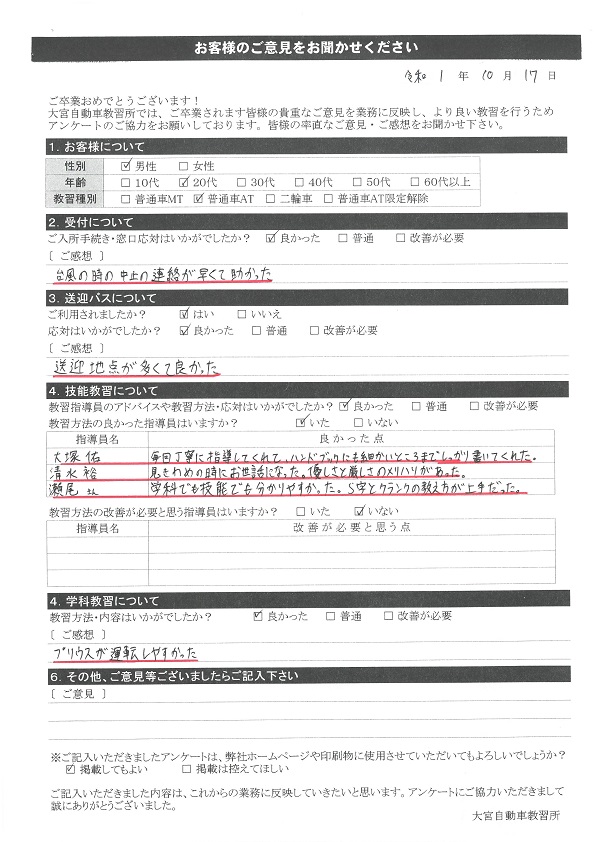 お客様のご意見をお聞かせください
令和 1 年 10 月 17 日
ご卒業おめでとうございます！
大宮自動車教習所では、ご卒業されます皆様の貴重なご意見を業務に反映し、より良い教習を行うため
アンケートのご協力をお願いしております。皆様の率直なご意見・ご感想をお聞かせ下さい。
1. お客様について
性別 ☑ 男性 □ 女性
年齢 □ 10代 ☑ 20代 □ 30代 □ 40代 □ 50代 □ 60代以上
教習種別 □ 普通車MT ☑ 普通車AT □ 二輪車 □ 普通車AT限定解除
2. 受付について
ご入所手続き・窓口応対はいかがでしたか？ ☑ 良かった □ 普通 □ 改善が必要
［ ご感想 ］
台風の時の中止の連絡が早くて助かった
3. 送迎バスについて
ご利用されましたか？ ☑ はい □ いいえ
応対はいかがでしたか？ ☑ 良かった □ 普通 □ 改善が必要
［ ご感想 ］
送迎地点が多くて良かった
4. 技能教習について
教習指導員のアドバイスや教習方法・応対はいかがでしたか？ ☑ 良かった □ 普通 □ 改善が必要
教習方法の良かった指導員はいますか？ ☑ いた □ いない
指導員名 良かった点
大塚 佑 毎回丁寧に指導してくれて、ハンドブックにも細かいところまでしっかり書いてくれた。
清水 裕 見きわめの時にお世話になった。優しさと厳しさのメリハリがあった。
瀬尾 さん 学科でも技能でも分かりやすかった。S字とクランクの教え方が上手だった。
教習方法の改善が必要と思う指導員はいますか？ □ いた ☑ いない
指導員名 改善が必要と思う点
4. 学科教習について
教習方法・内容はいかがでしたか？ ☑ 良かった □ 普通 □ 改善が必要
［ ご感想 ］
プリウスが運転しやすかった
6. その他、ご意見等ございましたらご記入下さい
［ ご意見 ］
※ご記入いただきましたアンケートは、弊社ホームページや印刷物に使用させていただいてもよろしいでしょうか？
☑ 掲載してもよい □ 掲載は控えてほしい
ご記入いただきました内容は、これからの業務に反映していきたいと思います。アンケートにご協力いただきまして
誠にありがとうございました。
大宮自動車教習所